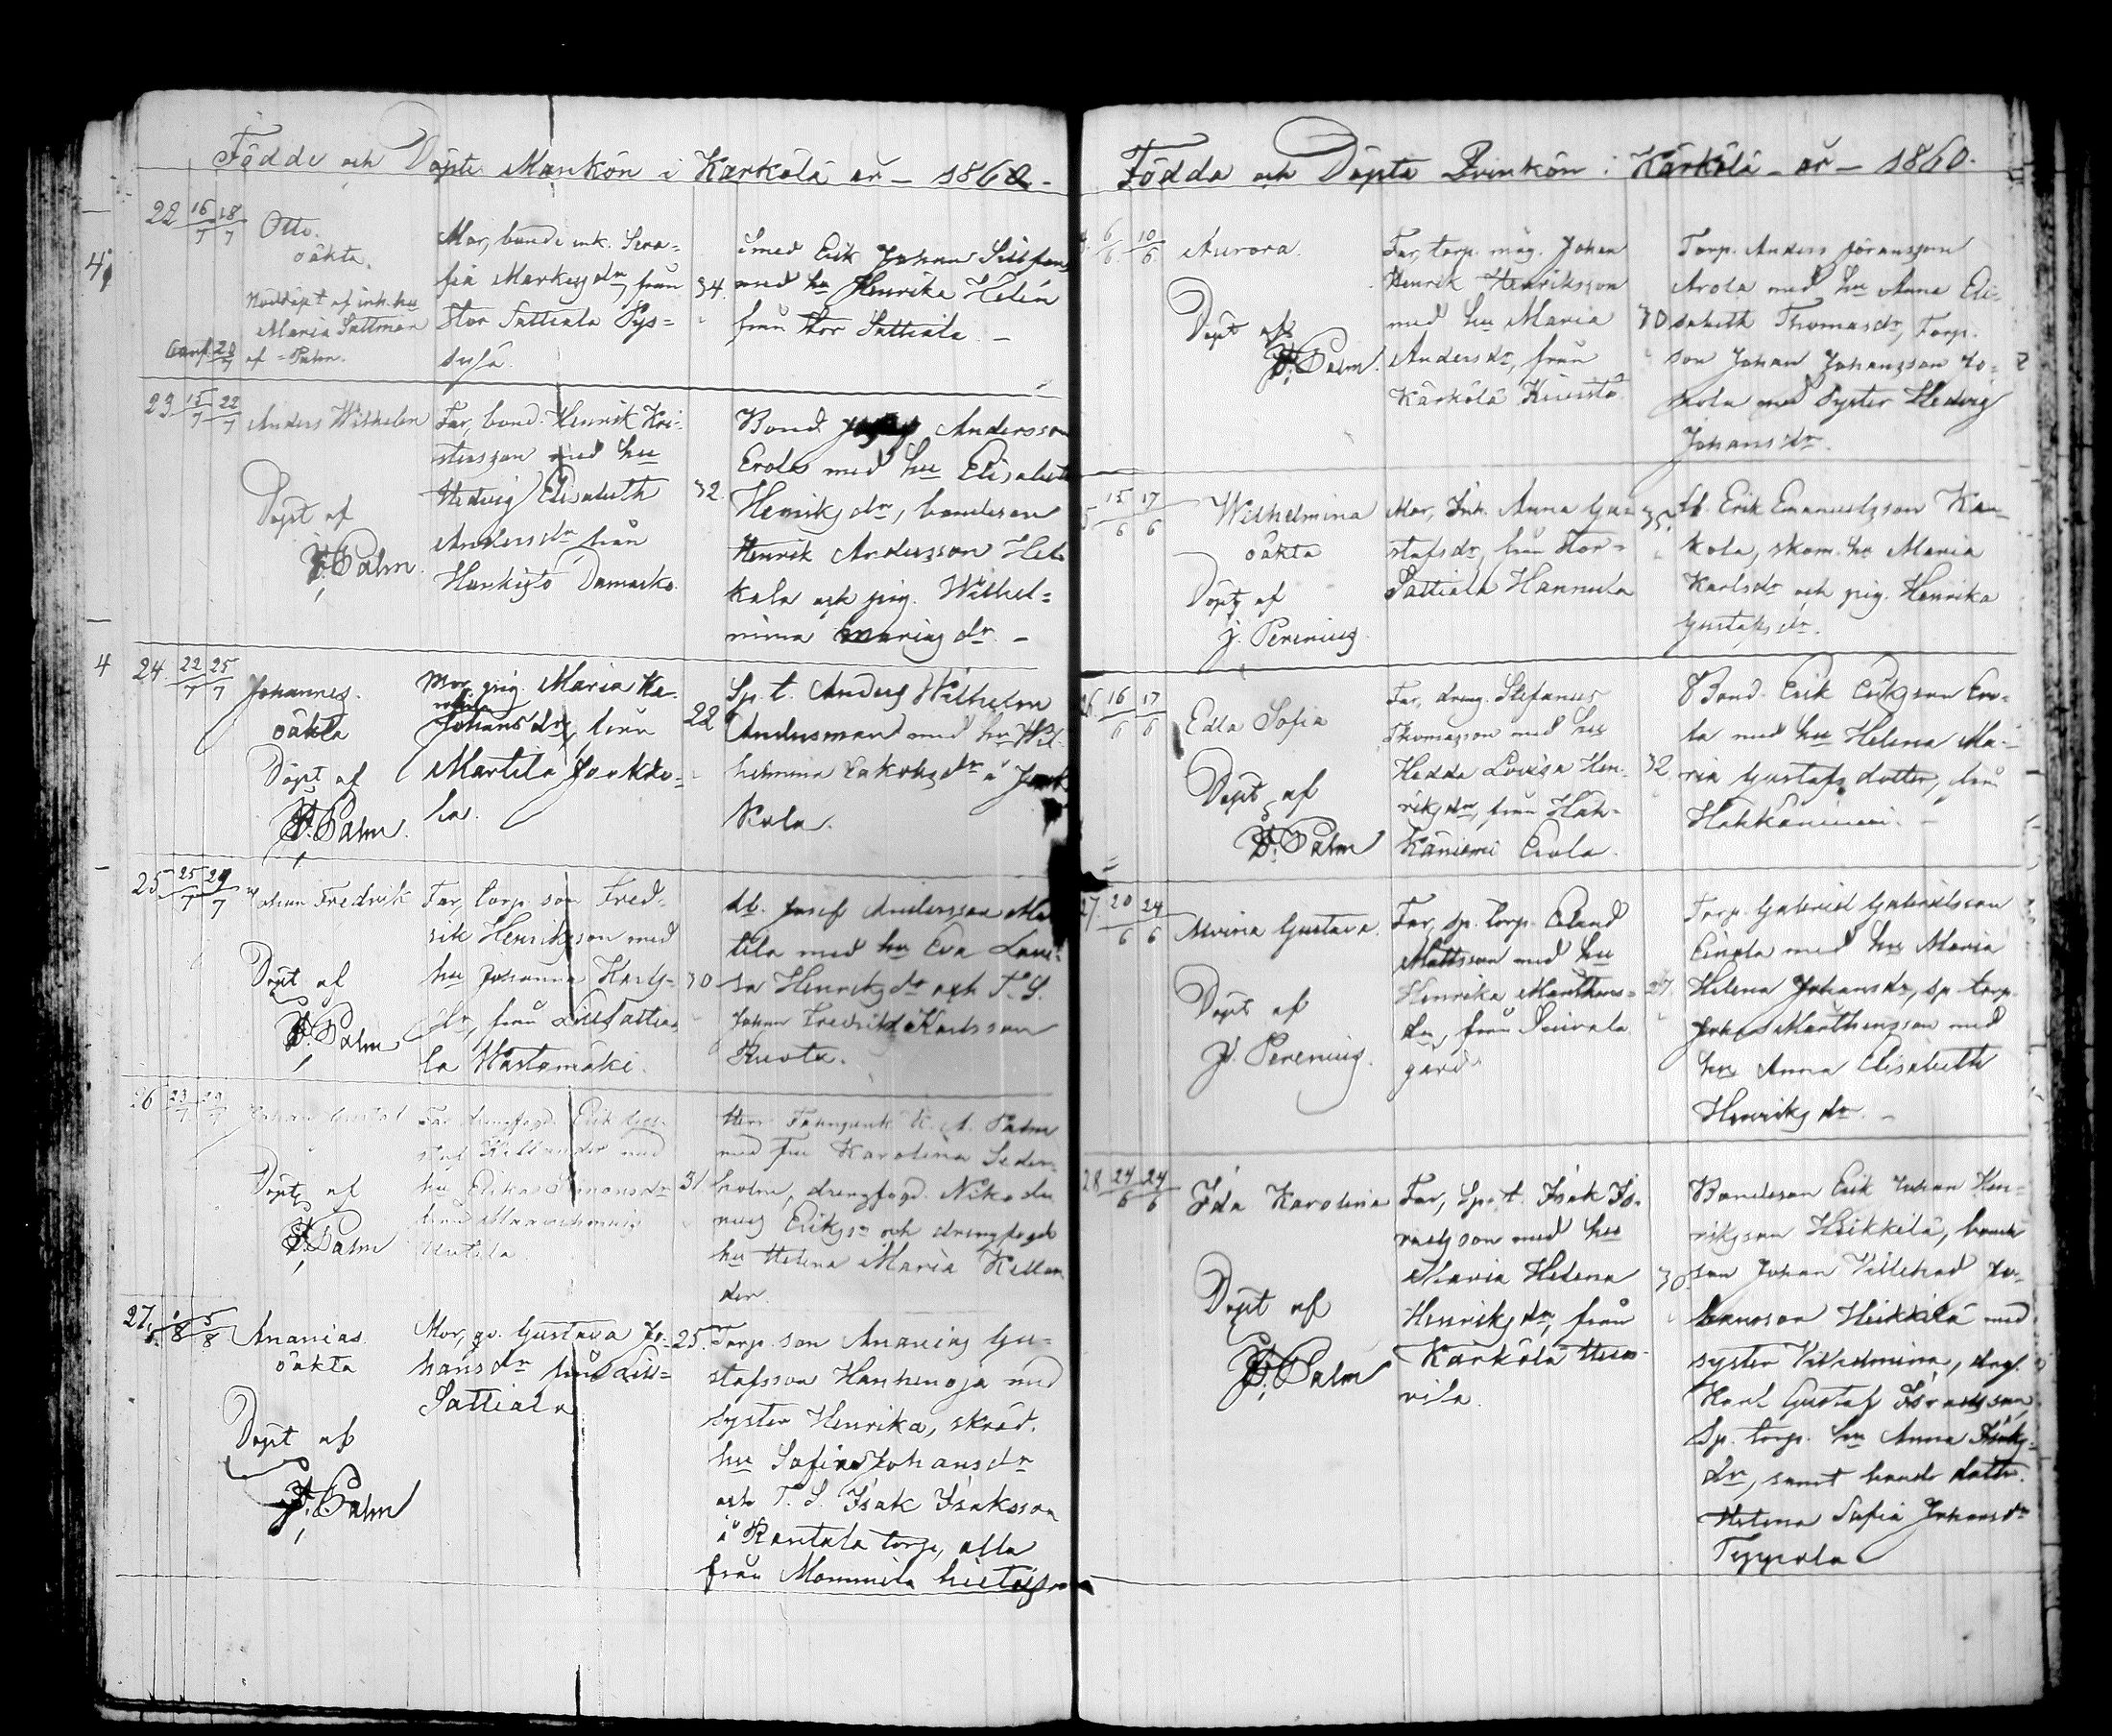 Födde och Döpte Mankön i Kärkölä år – 1860 –
22 16/7 18/7 Otto.
oäkta.
Nöddöpt af inh. hu
Maria Sattman
Conf. 20/7 af Palm.
Mor, bonde ink. Sera-
fia Markusdr, från
Stor Sattiala Pys-
34.
Smed Erik Johan
med hu Henrika Helén
från Stor Sattiala –
23 15/7 22/7 Anders Wilhelm
Döpt af
Palm.
Far, bond. Henrik Kri-
stersson med hu
Hedvig Elisabeth
Andersdr från
Hankisto Damaska
32.
Bond. Andersson
Erola med hu Elisabeth
Henriksdr, bondeson
Henrik Andersson Hei-
kola och pig. Wilhel-
mina Mariasdr. –
4 24 22/7 25/7 Johannes.
oäkta
Döpt af
Palm.
Mor, pig. Maria Ka-
rolina
Johansdr från
Martila Jorkko-
la.
22
Sp. t. Anders Wilhelm
Andersman med hu Wil-
helmina Jakobsdr å
kola.
25 25/7 29/7 Johan Fredrik
Döpt af
Palm
Far, torp. son Fred-
rik Henriksson med
hu Johanna Karls-
dr, från Lill Sattia-
la Wästämäki.
30
Ab. Josef Andersson
tila med hu Eva Lovi-
sa Henriksdr och T. S.
Johan Fredrik Karlsson
Ruota.
26 23/7 29/7 Johan Gustaf
Döpt af
Palm
Far drengfogd. Erik Gu-
staf Kellander med
hu Erika Simonsdr
från
Uutela
31.
Herr Fanjunk. K. A. Palm
med fru Karolina Seder-
holm, drengfogd. Nikode-
mus Eriksson och drengfogde
hu Helena Maria Kellan-
der.
27. 1/8 5/8 Ananias.
oäkta
Döpt af
Palm
Mor, pi. Gustava Jo-
hansdr från Lill-
Sattiala
25.
Torp. son Ananias Gu-
stafsson Hanhenoja med
syster Henrika, skräd.
hu Sofia Johansdr
och T. S. Isak Isaksson
å Rantala torp, alla
från Mommila
Födda och Döpta Qvinkön i Kärkölä – år – 1860.
6/6 10/6 Aurora.
Döpt af
Palm.
Far, torp. måg. Johan
Henrik Henriksson
med hu Maria
Andersdr, från
Kärkölä
30
Torp. Anders Göransson
Arola med hu Anna Eli-
sabeth Thomasdr, Torp.
son Johan Johansson
med syster Hedvig
Johansdr.
15/6 17/6 Wilhelmina
oäkta
Döpt af
J. Perenius.
Mor, Inh. Anna Gu-
stafsdr, från Stor-
Sattiala Hannula
35.
Ab. Erik Emanuelsson Kau-
kola, skom. hu Maria
Karlsdr och pig. Henrika
Gustafsdr.
26. 16/6 17/6 Edla Sofia
Döpt af
Palm
Far, dreng. Stefanus
Thomasson med hu
Hedda Lovisa Hen-
riksdr, från Häh-
käniemi Erola.
32
Bond. Erik Eriksson Ero-
la med hu Helena Ma-
ria Gustafs dotter, från
Hähkäniemi. –
27. 20/6 24/6 Alvina Gustava.
Döpt af
J. Perenius.
Far, sp. torp. Erland
Mattsson med hu
Henrika Marthens-
dr, från Laivala
gård
27.
Torp. Gabriel Gabrielsson
Einola med hu Maria
Helena Johansdr, sp. torp.
Johan Marthensson med
hu Anna Elisabeth
Henriksdr. –
28 24/6 24/6 Ida Karolina
Döpt af
Palm
Far, Sp. t. Isak Is-
raelsson med hu
Maria Helena
Henriksdr, från
Kärkölä
vila.
30.
Bondeson Erik Johan Hen-
riksson Heikkilä, bonde
son Johan Villehad Jo-
hansson Heikkilä med
syster Vilhelmina, drg.
Karl Gustaf Israelsson
Sp. torp. hu Anna Isaks-
dr, samt bonde dotter.
Helena Sofia Johansdr
Teppola